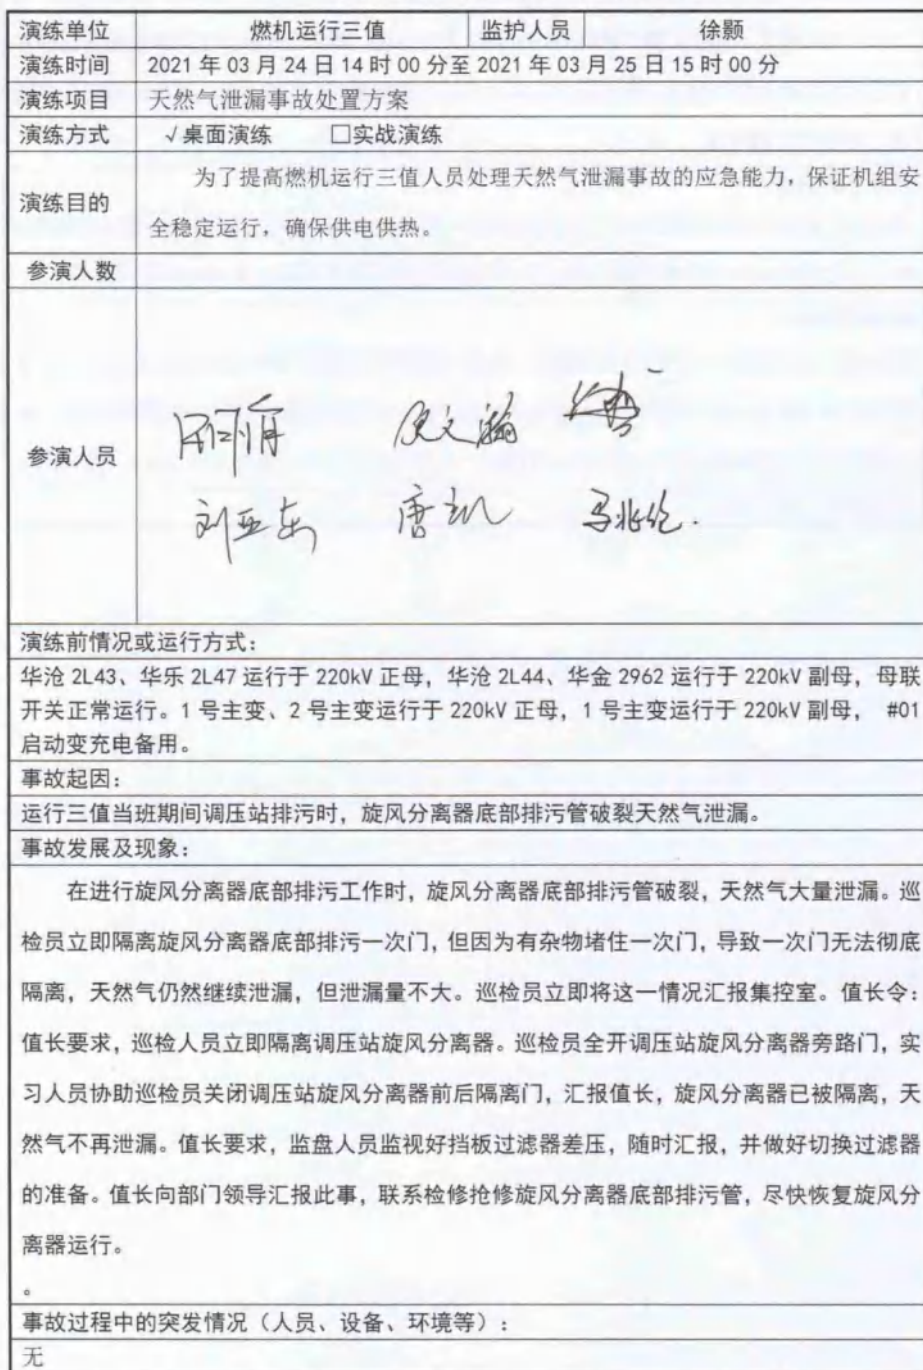 演练单位 燃机运行三值 监护人员 徐颢
演练时间 2021 年 03 月 24 日 14 时 00 分至 2021 年 03 月 25 日 15 时 00 分
演练项目 天然气泄漏事故处置方案
演练方式 √桌面演练 □实战演练
演练目的 为了提高燃机运行三值人员处理天然气泄漏事故的应急能力，保证机组安
全稳定运行，确保供电供热。
参演人数
参演人员
刘亚东 唐凯 马兆伦
演练前情况或运行方式：
华沧 2L43、华乐 2L47 运行于 220kV 正母，华沧 2L44、华金 2962 运行于 220kV 副母，母联
开关正常运行。1 号主变、2 号主变运行于 220kV 正母，1 号主变运行于 220kV 副母， #01
启动变充电备用。
事故起因：
运行三值当班期间调压站排污时，旋风分离器底部排污管破裂天然气泄漏。
事故发展及现象：
在进行旋风分离器底部排污工作时，旋风分离器底部排污管破裂，天然气大量泄漏。巡
检员立即隔离旋风分离器底部排污一次门，但因为有杂物堵住一次门，导致一次门无法彻底
隔离，天然气仍然继续泄漏，但泄漏量不大。巡检员立即将这一情况汇报集控室。值长令：
值长要求，巡检人员立即隔离调压站旋风分离器。巡检员全开调压站旋风分离器旁路门，实
习人员协助巡检员关闭调压站旋风分离器前后隔离门，汇报值长，旋风分离器已被隔离，天
然气不再泄漏。值长要求，监盘人员监视好挡板过滤器差压，随时汇报，并做好切换过滤器
的准备。值长向部门领导汇报此事，联系检修抢修旋风分离器底部排污管，尽快恢复旋风分
离器运行。
。
事故过程中的突发情况（人员、设备、环境等）：
无